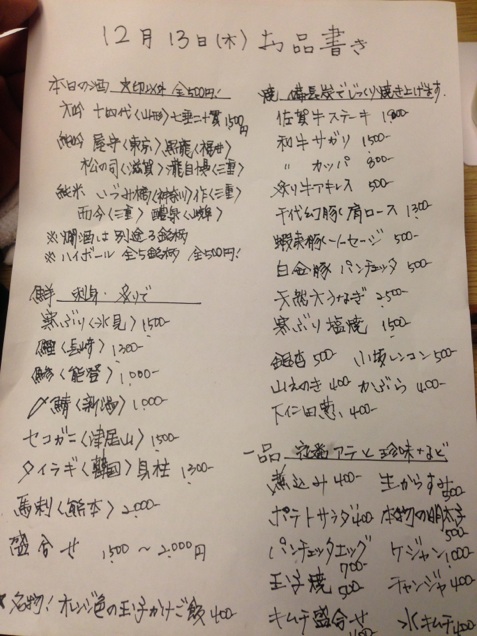 12月13日(木) お品書き
本日の酒 全500円!
大吟 十四代〈山形〉七垂二十貫 1500円
純吟 屋守〈東京〉黒龍〈福井〉
松の司〈滋賀〉瀧自慢〈三重〉
純米 いづみ橋〈神奈川〉作〈三重〉
而今〈三重〉醴泉〈岐阜〉
※燗酒は別途3銘柄
※ハイボール 全5銘柄 全500円!
鮮 刺身・炙りで
寒ぶり〈氷見〉1500-
〈長崎〉1300-
〈能登〉1,000-
〆鯖〈新潟〉1,000-
セコガニ〈津居山〉1500-
タイラギ〈韓国〉貝柱 1300-
馬刺〈熊本〉2,000-
盛合せ 1500~2,000円
名物!オレンジ色の玉子かけご飯 400-
焼 備長炭でじっくり焼き上げます.
佐賀牛ステーキ 1800
和牛サガリ 1500-
〃 カッパ 800-
牛アキレス 500-
千代幻豚 肩ロース 1300-
蝦夷豚ソーセージ 500-
白金豚 パンチェッタ 500-
天然大うなぎ 2,500-
寒ぶり塩焼 1500-
銀杏 500- 小坂レンコン 500-
山えのき 400 かぶら 400-
下仁田葱 400-
一品 定番アテと珍味など
煮込み 400- 生からすみ 500-
ポテトサラダ 400 本物の明太子 500-
パンチェッタエッグ 700- ケジャン 1,000-
玉子焼 500- チャンジャ 400-
キムチ盛合せ 水キムチ 400-